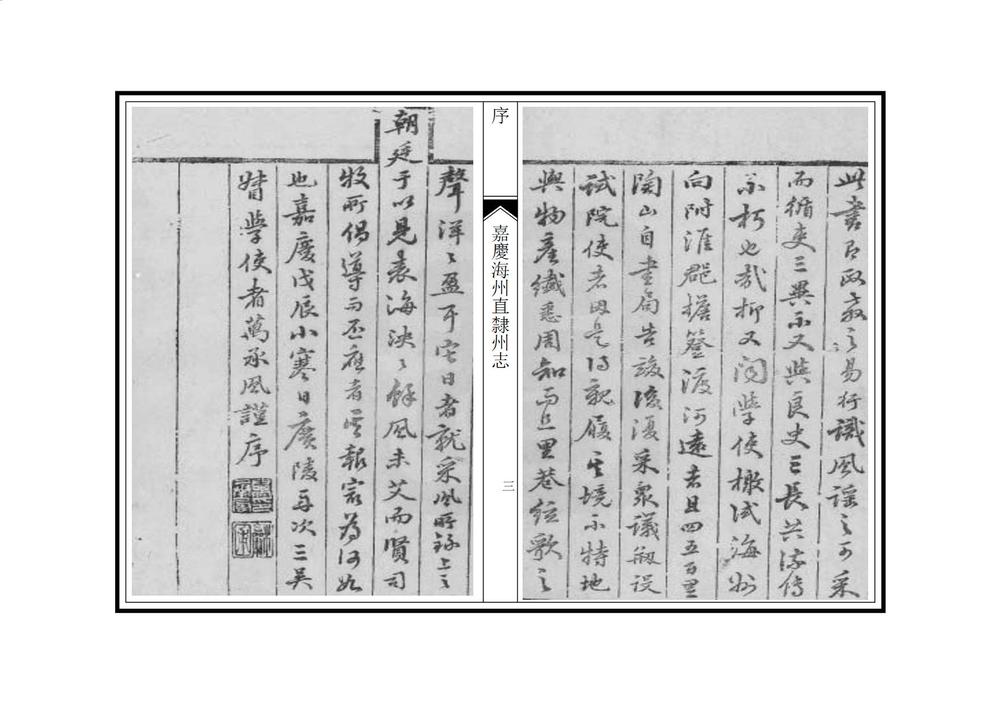 此書而政教之易行識風謠之可采
而循吏三異不又與良史三長共流傳
不朽也哉抑又聞學使檄試海州
向附淮郡擔簦渡河遠者且四五百里
陶山自書局告竣後復采眾議剏設
試院使者因是得親履其境不特地
與物產纖悉周知而且里巷絃歌之
序
嘉慶海州直隸州志
三
聲洋〻盈耳它日者就采風所錄上之
朝廷于以見表海泱〻餘風未艾而賢司
牧所倡導而丕應者其報宜為何如
也嘉慶戊辰小寒日廣陵舟次三吳
督學使者萬承風謹序